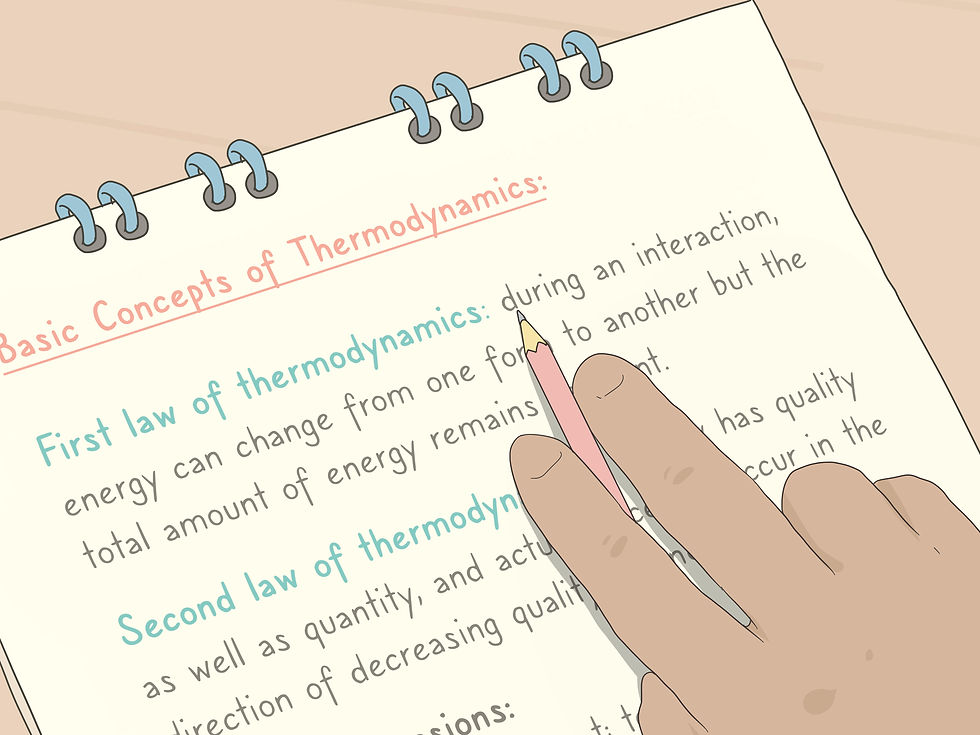 Basic Concepts of Thermodynamics:
First law of thermodynamics: during an interaction,
energy can change from one to another but the
total amount of energy remains
Second law of has quality
as well as quantity, and in the
direction of decreasing